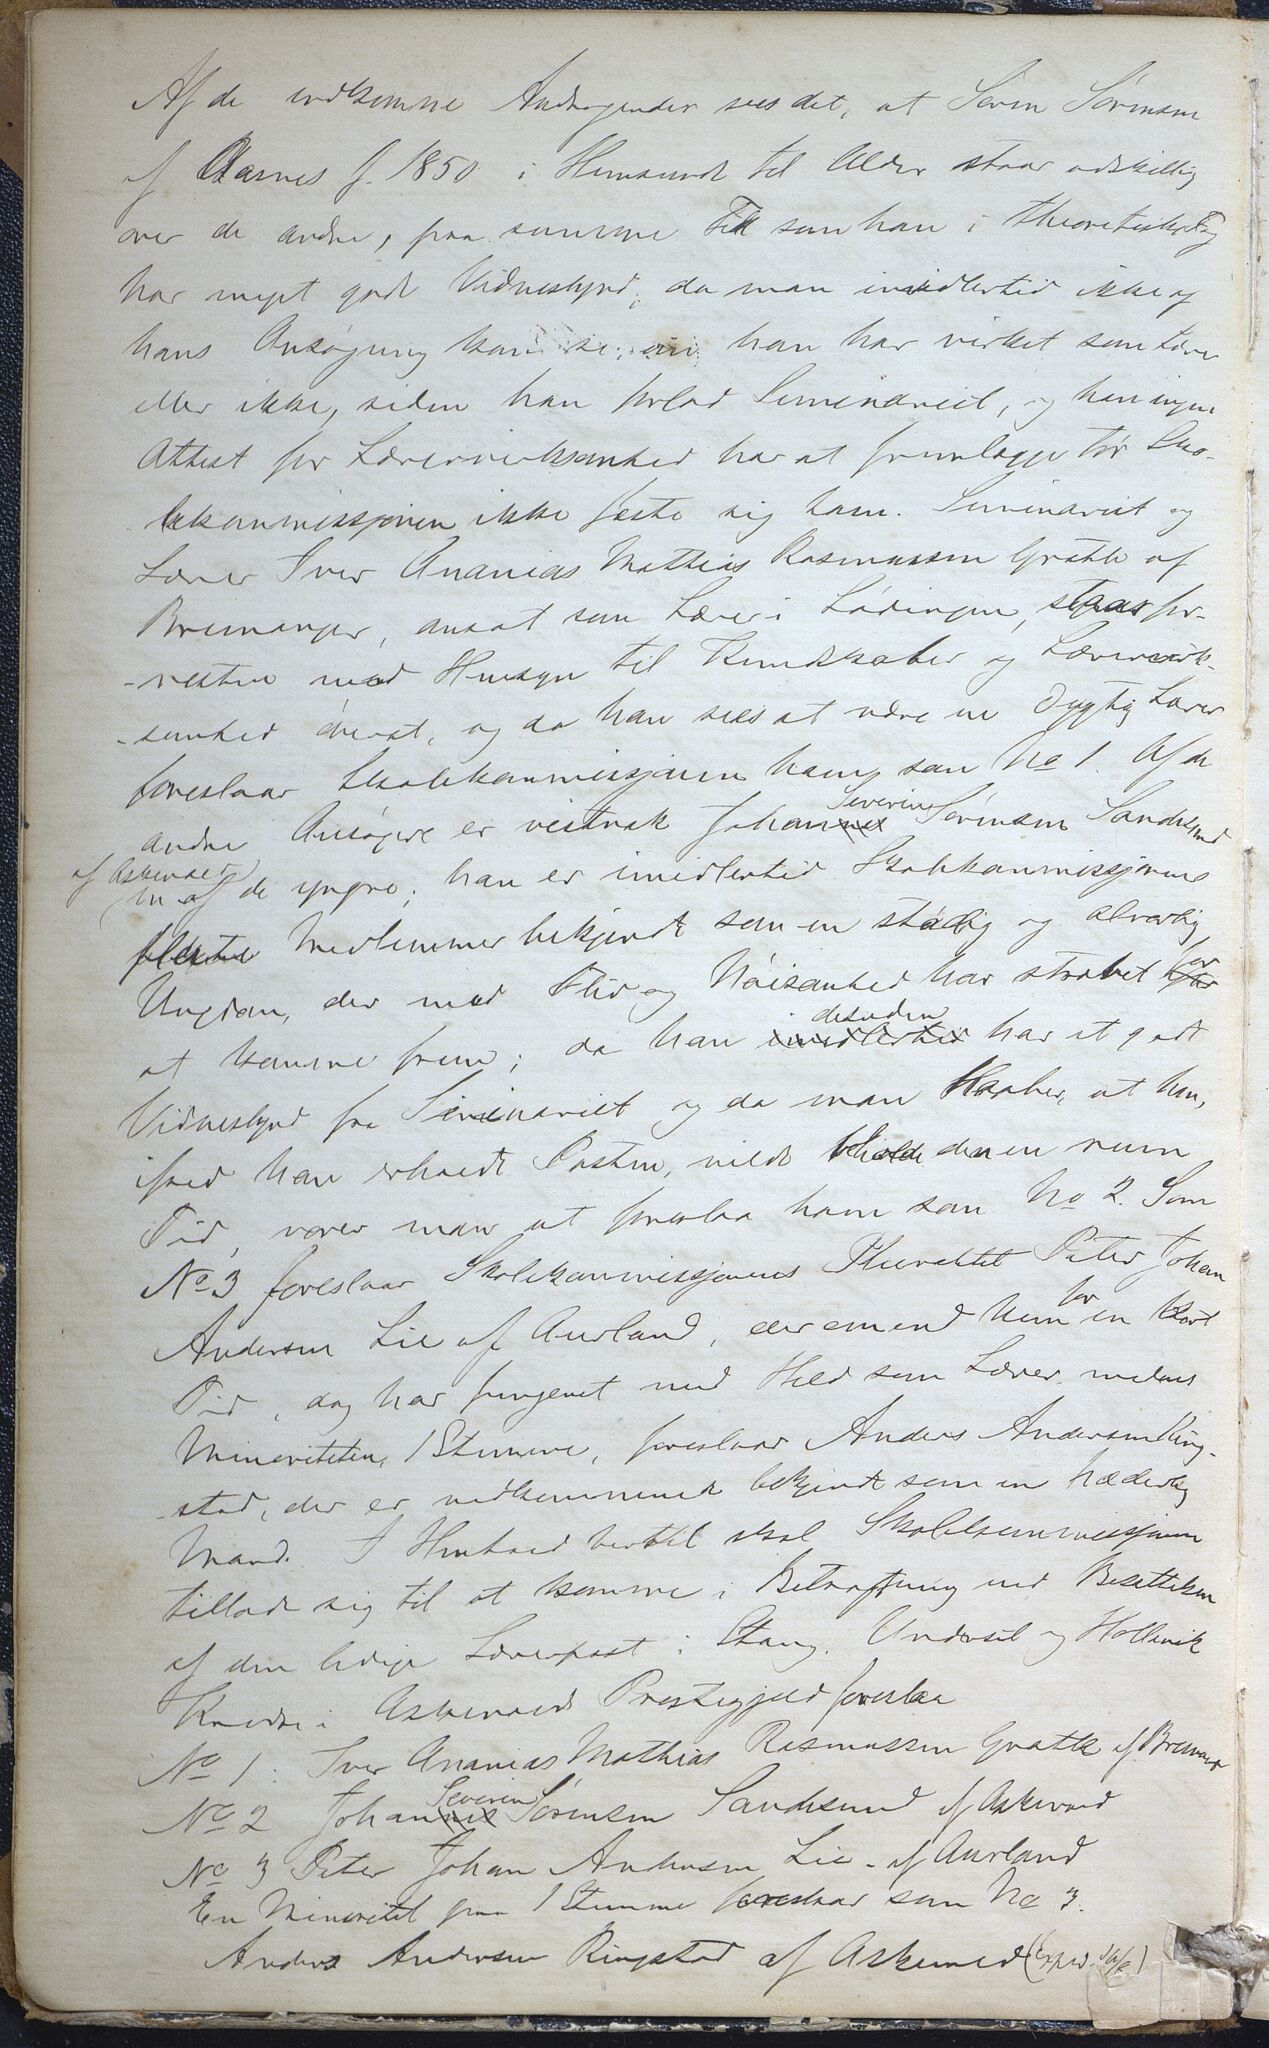 Af de indkomne Andragender sees det, at Søren Sørensen
af Aasnes f. 1850 i Hensende til Alder staar adskillig
over de andre, paa samme Tid som han i theoretiske Fag
har meget godt Vidnesbyrd; da man imidlertid ikke af
hans Ansøgning kan se, om han har virket som Lærer
eller ikke, siden han forlod Seminariet, og han ingen
Attest for Lærervirksomhed har at fremlægge tør Sko-
lekommissjonen ikke feste sig ham. Seminarist og
Lærer Iver Ananias Mathias Rasmussen Grotle af
Bremanger, ansat som Lærer i Lødingen, staar for-
resten med Hensyn til Kundskaber og Lærervirk-
somhed øverst, og da han sees at være en dygtig Lærer
foreslaar Skolekommissjonen ham som No 1. Af de
andre Ansøgere er vistnok Johannes Severin Sørensen Sandesund
af Askevold en af de yngre; han er imidlertid Skolekommissjonens
fleste Medlemmer bekjendt som en stadig og alvorlig
Ungdom, der med Flid og Nøisomhed har strævet for
at komme frem; da han imidlertid desuden har et godt
Vidnesbyrd fra Seminariet og da man Haaber, at han,
ifald han erholdt Posten, vilde beholde den en rum
Tid, vover man at foreslaa ham som No 2. Som
No 3 foreslaar Skolekommissjonens Pluralitet Peter Johan
Andersen Lie af Aurland, der omend kun for en kort
Tid, dog har fungeret med Held som Lærer, medens
Minoriteten, 1 Stemme, foreslaar Anders Andersen Ring-
stad, der er vedkommende bekjendt som en hæderlig
Mand. I Henhold hertil skal Skolekommissjonen
tillade sig til at komme i Betragtning ved Besettelsen
af den ledige Lærerpost i Stang, Undersil og Hollevik
Kredse i Askevold Prestegjeld foreslaa
No 1: Iver Ananias Mathias Rasmussen Grotle af Bremanger
No 2 Johannes Severin Sørensen Sandesund af Askevold
No 3 Peter Johan Andersen Lie – af Aurland
En Minoritet paa 1 Stemme foreslaar som No 3.
Anders Andersen Ringstad af Askevold (exped.